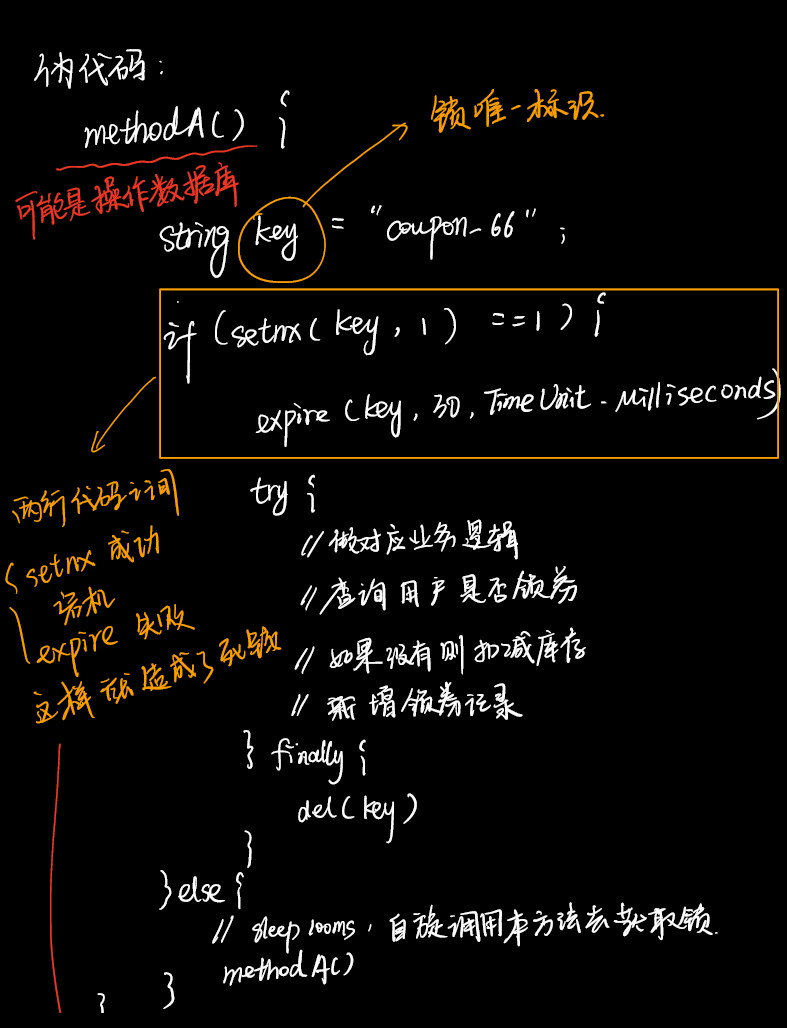 伪代码：
methodA() {
锁唯一标识.
可能是操作数据库
string key = "coupon-66" ;
if (setnx(key, 1) ==1) {
expire (key, 30, TimeUnit.Milliseconds)
两行代码之间
{ setnx 成功
宕机
expire 失败
这样就造成了死锁
try {
//做对应业务逻辑
//查询用户是否领券
//如果没有则扣减库存
//新增领券记录
} finally {
del(key)
}
}else {
// sleep 100ms, 自旋调用本方法去获取锁.
methodA()
}
}